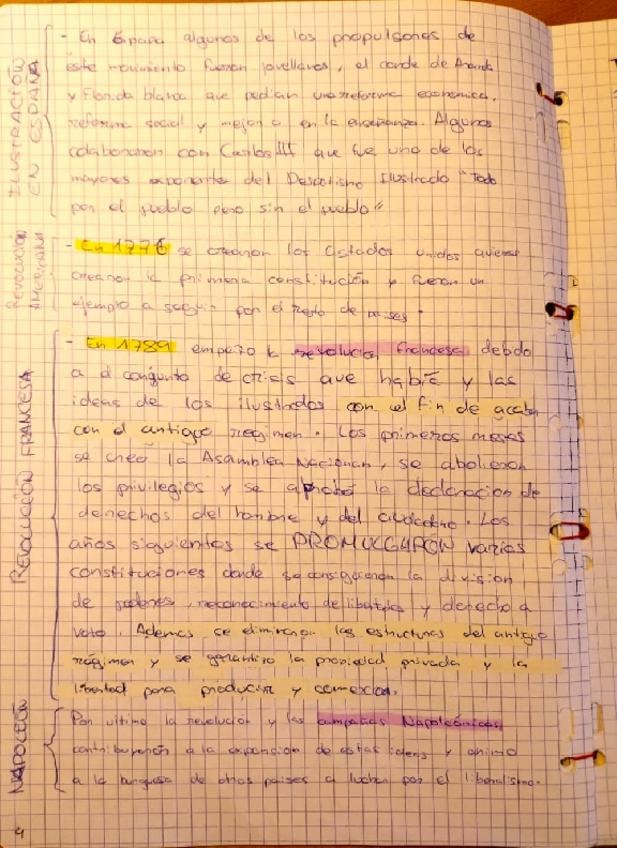 ILUSTRACIÓN
EN ESPAÑA
- En España algunos de los propulsores de
este movimiento fueron jovellanos, el conde de Aranda
y Florida blanca que pedian una reforma economica,
reforma social y mejora en la enseñanza. Algunos
colaboraron con Carlos III que fue uno de los
mayores exponente del Despotismo Ilustrado "Todo
por el pueblo pero sin el pueblo"
REVOLUCIÓN
AMERICANA
- En 1776 se crearon los Estados unidos quienes
crearon la primera constitución y fueron un
ejemplo a seguir por el resto de paises.
REVOLUCIÓN FRANCESA
- En 1789 empezo la revolucion francesa debido
a el conjunto de crisis que habia y las
ideas de los ilustrados con el fin de acabar
con el antiguo regimen. Los primeros meses
se creó la Asamblea Nacional, se abolieron
los privilegios y se aprobó la declaracion de
derechos del hombre y del ciudadano. Los
años siguientes se PROMULGARON varias
constituciones donde se consiguieron la division
de poderes, reconocimiento de libertades y derecho a
voto. Ademas se eliminaron las estructuras del antiguo
régimen y se garantizo la propiedad privada y la
libertad para producir y comerciar.
NAPOLEÓN
Por ultimo la revolucion y las campañas Napoleónicas
contribuyeron a la expansion de estas ideas y animo
a la burguesa de otros paises a luchar por el liberalismo.
4